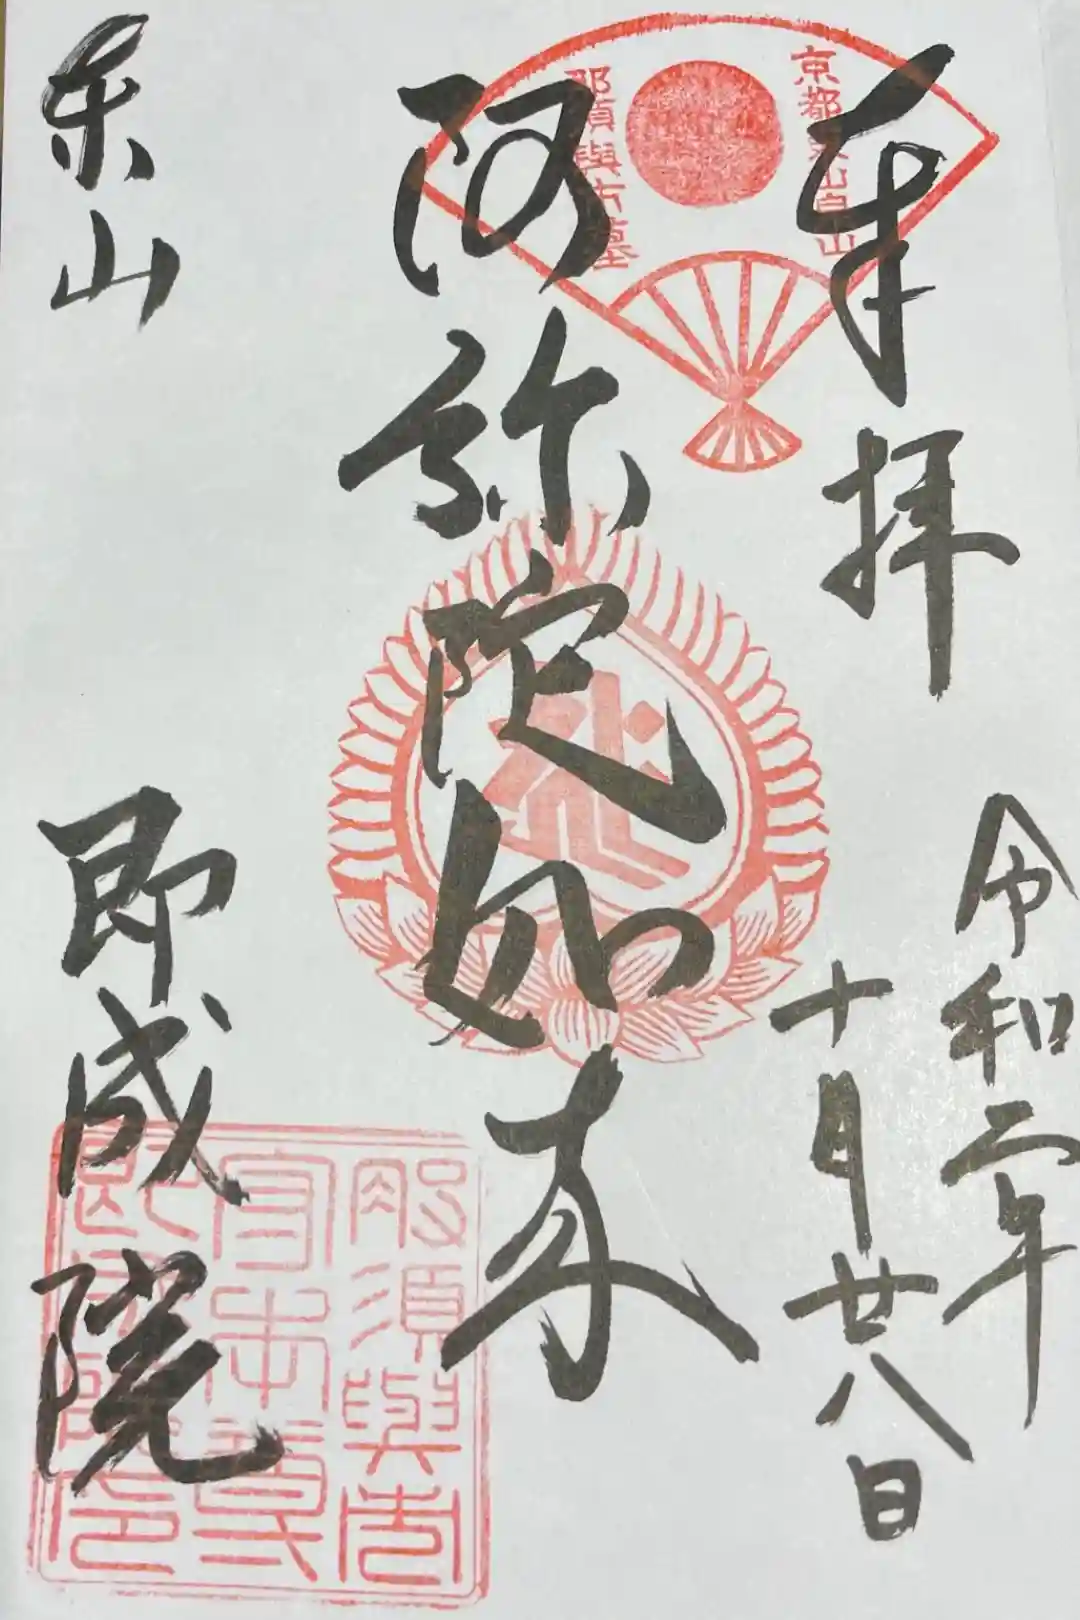 奉拝
令和二年
十月廿八日
京都
那須與市墓
阿弥陀如来
泉山
即成院
那須與市
守本尊
即成院印